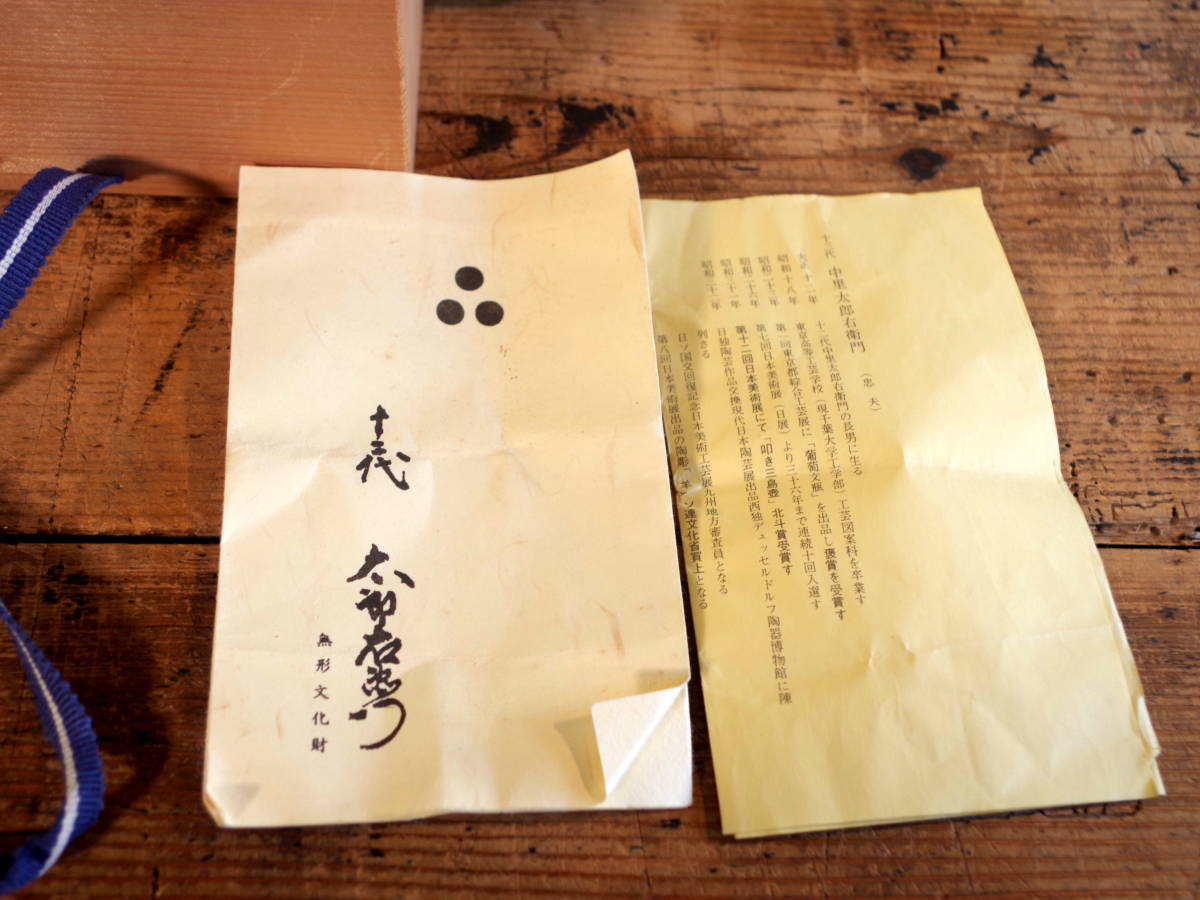 十三代 太郎右衛門
無形文化財
十三代 中里太郎右衛門
(忠夫)
大正十二年 十二代中里太郎右衛門の長男に生る
昭和十八年 東京高等工芸学校(現千葉大学工学部)工芸図案科を卒業す
昭和二十三年 第一回東京都綜合工芸展に「葡萄文瓶」を出品し褒賞を受賞す
昭和二十六年 第七回日本美術展(日展)より三十六年まで連続十回入選す
昭和三十一年 第十二回日本美術展にて「叩き三島壺」北斗賞受賞す
昭和三十二年 日独陶芸作品交換現代日本陶芸展出品西独デュッセルドルフ陶器博物館に陳
列さる
日ソ国交回復記念日本美術工芸展九州地方審査員となる
第八回日本美術展出品の陶彫「羊」ソ連文化省買上となる